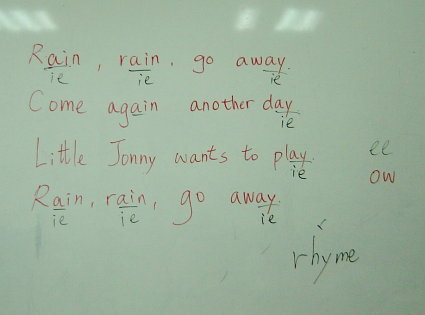 Rain, rain, go away.
ie ie ie
Come again another day
ie
Little Jonny wants to play.
ie
ee
ow
Rain, rain, go away.
ie ie ie
rhyme